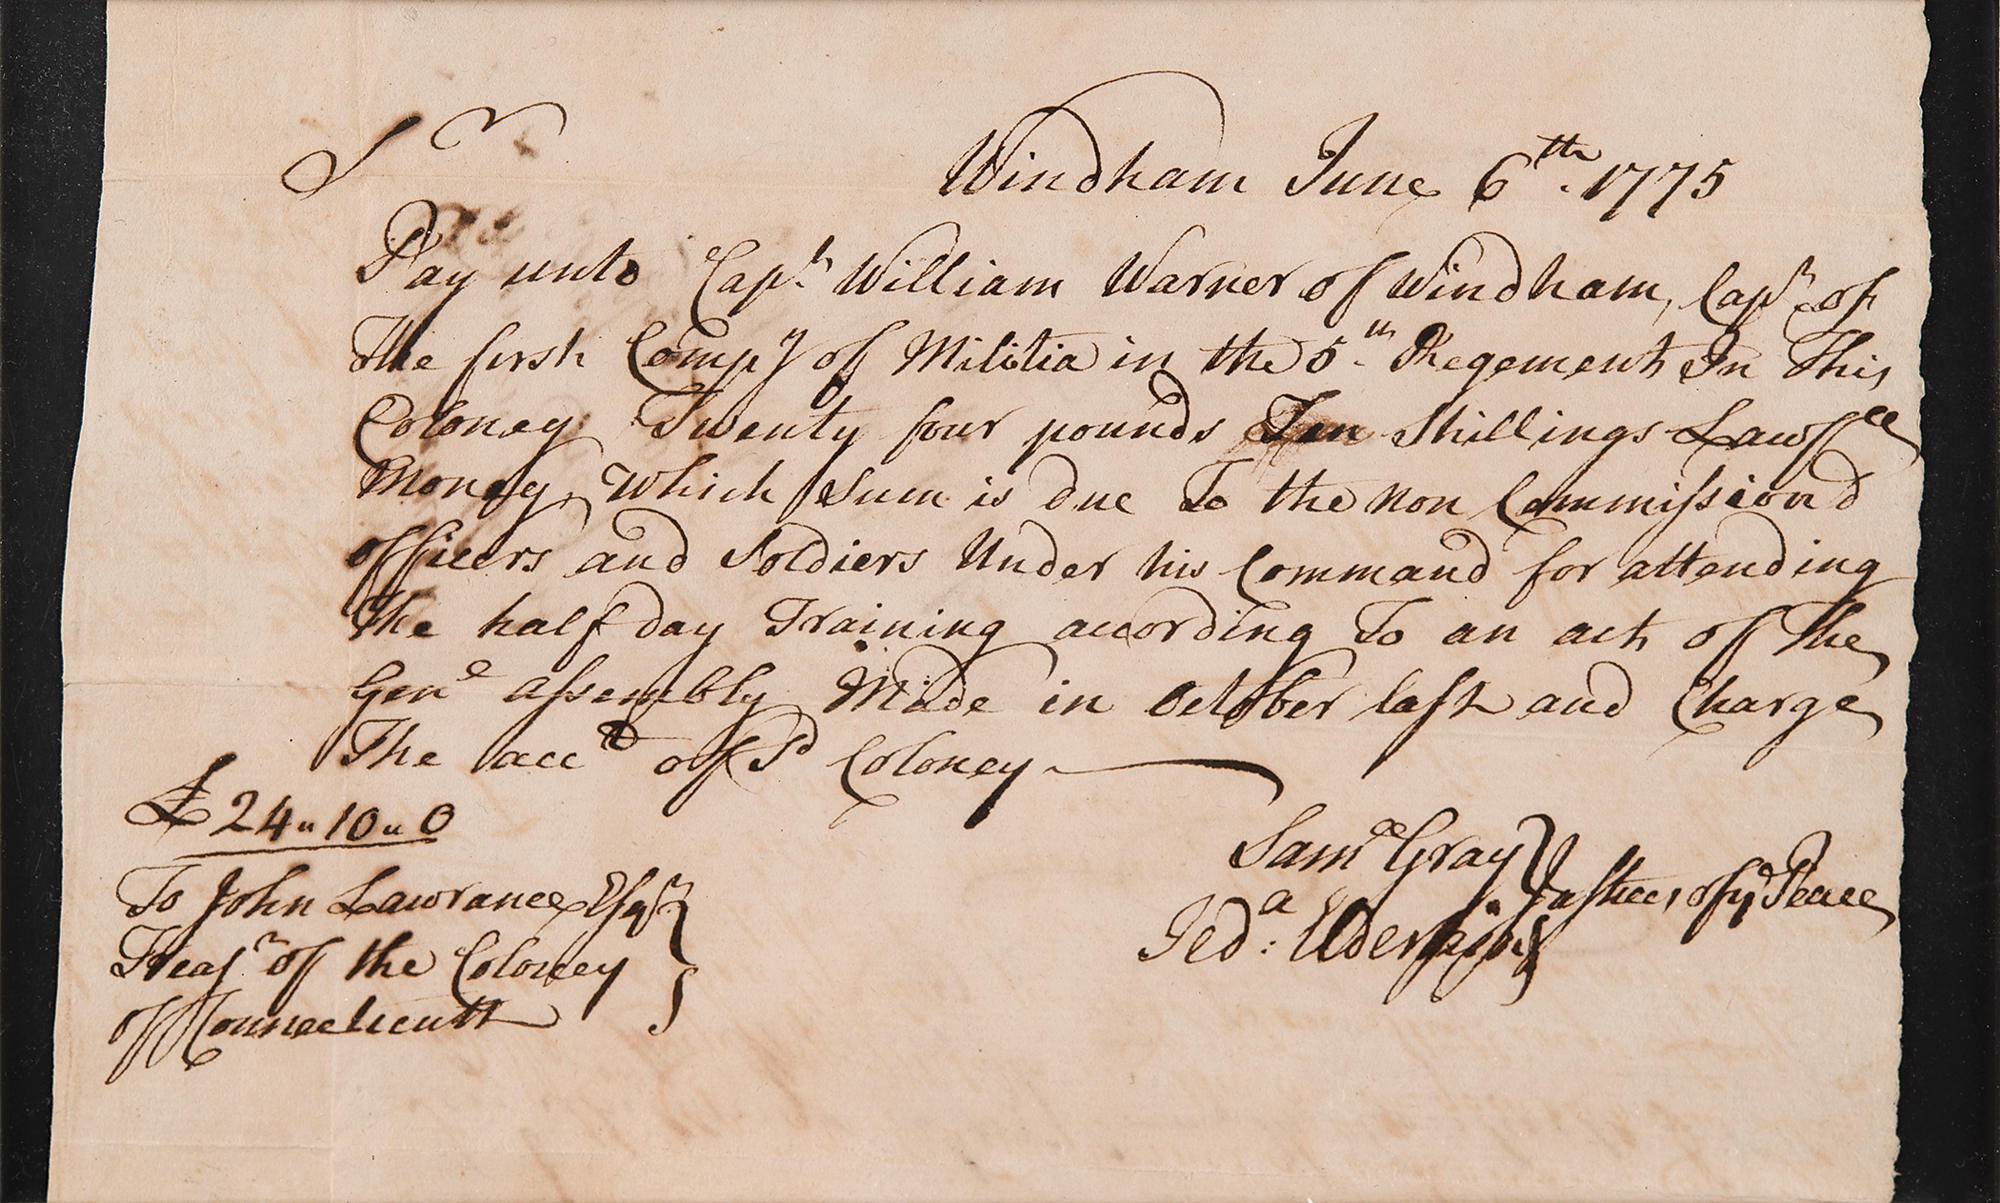 Sr
Windham June 6th. 1775
Pay unto Capt. William Warner of Windham, Capt. of
The first Compy of Militia in the 5th Regement In This
Coloney Twenty four pounds Ten Shillings Lawfll
Money, Which Sum is due To the non Commission'd
officers and Soldiers Under his Command for attending
The half day Training according To an act of The
Genll assembly Made in October last and Charge
The acctt of sd Coloney
£24"10"0
Saml Gray
Jeda: Elderkin
Justices of ye Peace
To John Lawrance Esqr
Treasr of the Coloney
of Connecticutt